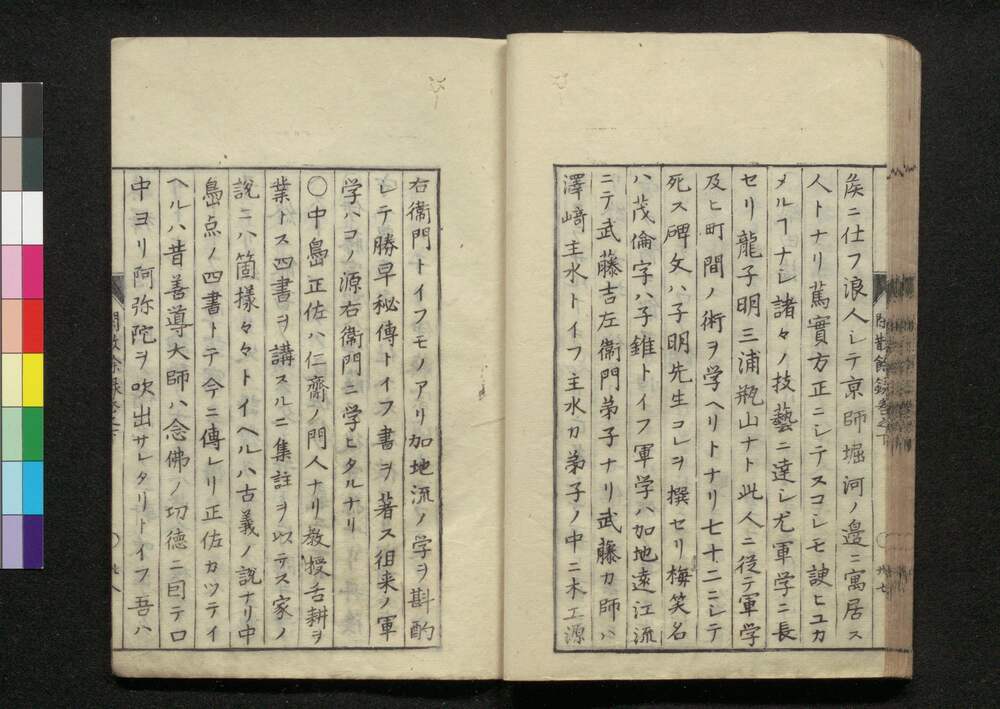 矦ニ仕フ浪人シテ京師堀河ノ邉ニ寓居ス
人トナリ篤實方正ニシテスコシモ諛ヒユカ
メルヿナシ諸々ノ技藝ニ達シ尤軍学ニ長
セリ龍子明三浦瓶山ナト此人ニ従テ軍学
及ヒ町間ノ術ヲ学ヘリトナリ七十二ニシテ
死ス碑文ハ子明先生コレヲ撰セリ梅笑名
ハ茂倫字ハ子錐トイフ軍学ハ加地遠江流
ニテ武藤吉左衞門弟子ナリ武藤カ師ハ
澤﨑主水トイフ主水カ弟子ノ中ニ木工源
右衞門トイフモノアリ加地流ノ学ヲ斟酌
シテ勝早秘傳トイフ書ヲ著ス徂来ノ軍
学ハコノ源右衞門ニ学ヒタルナリ
〇中島正佐ハ仁齋ノ門人ナリ教授舌耕ヲ
業トス四書ヲ講スルニ集註ヲ以テス家ノ
説ニハ箇様々々トイヘルハ古義ノ説ナリ中
島点ノ四書トテ今ニ傳レリ正佐カツテイ
ヘルハ昔善導大師ハ念佛ノ功徳ニ囙テロ
中ヨリ阿弥陀ヲ吹出サレタリトイフ吾ハ